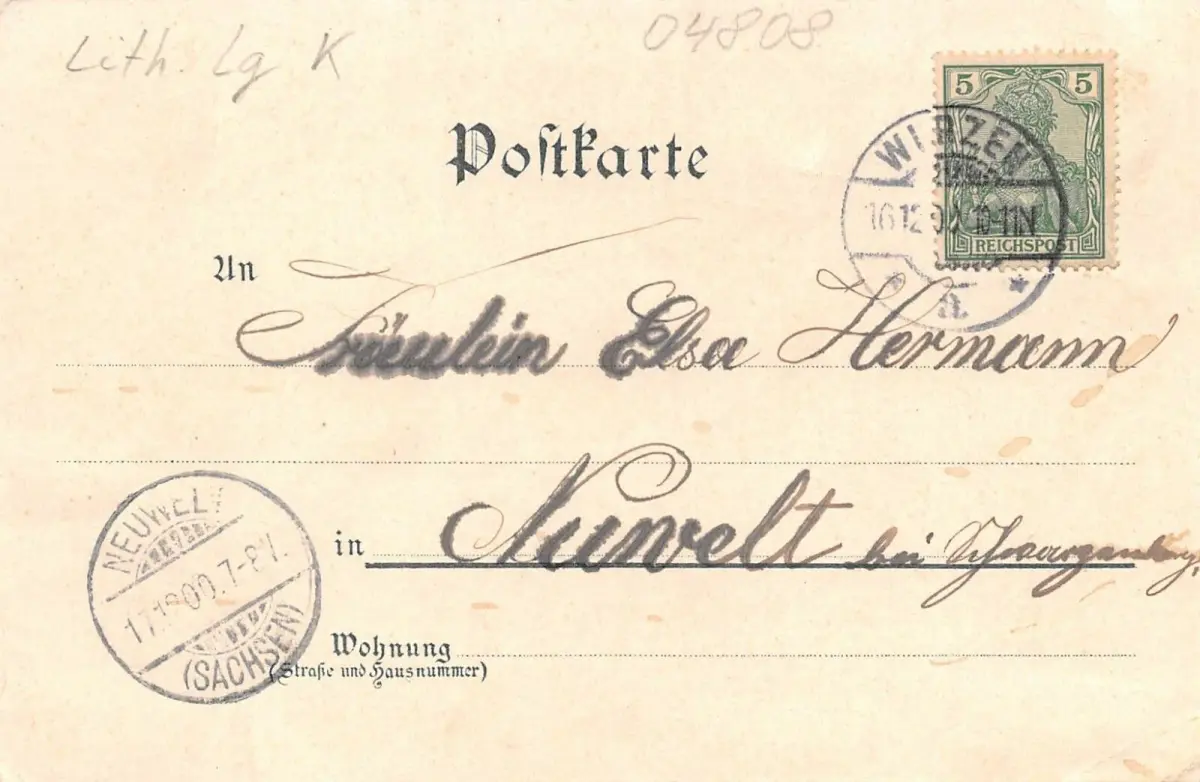 Lith. Lg K
04808
Postkarte
5 5
REICHSPOST
WURZEN
16 12 00 10-11N
a.
An
Fräulein Elsa Hermann
in Neuwelt bei Schwarzenberg,
NEUWELT
17.12 00. 7-8V.
(SACHSEN)
Wohnung
(Straße und Hausnummer)